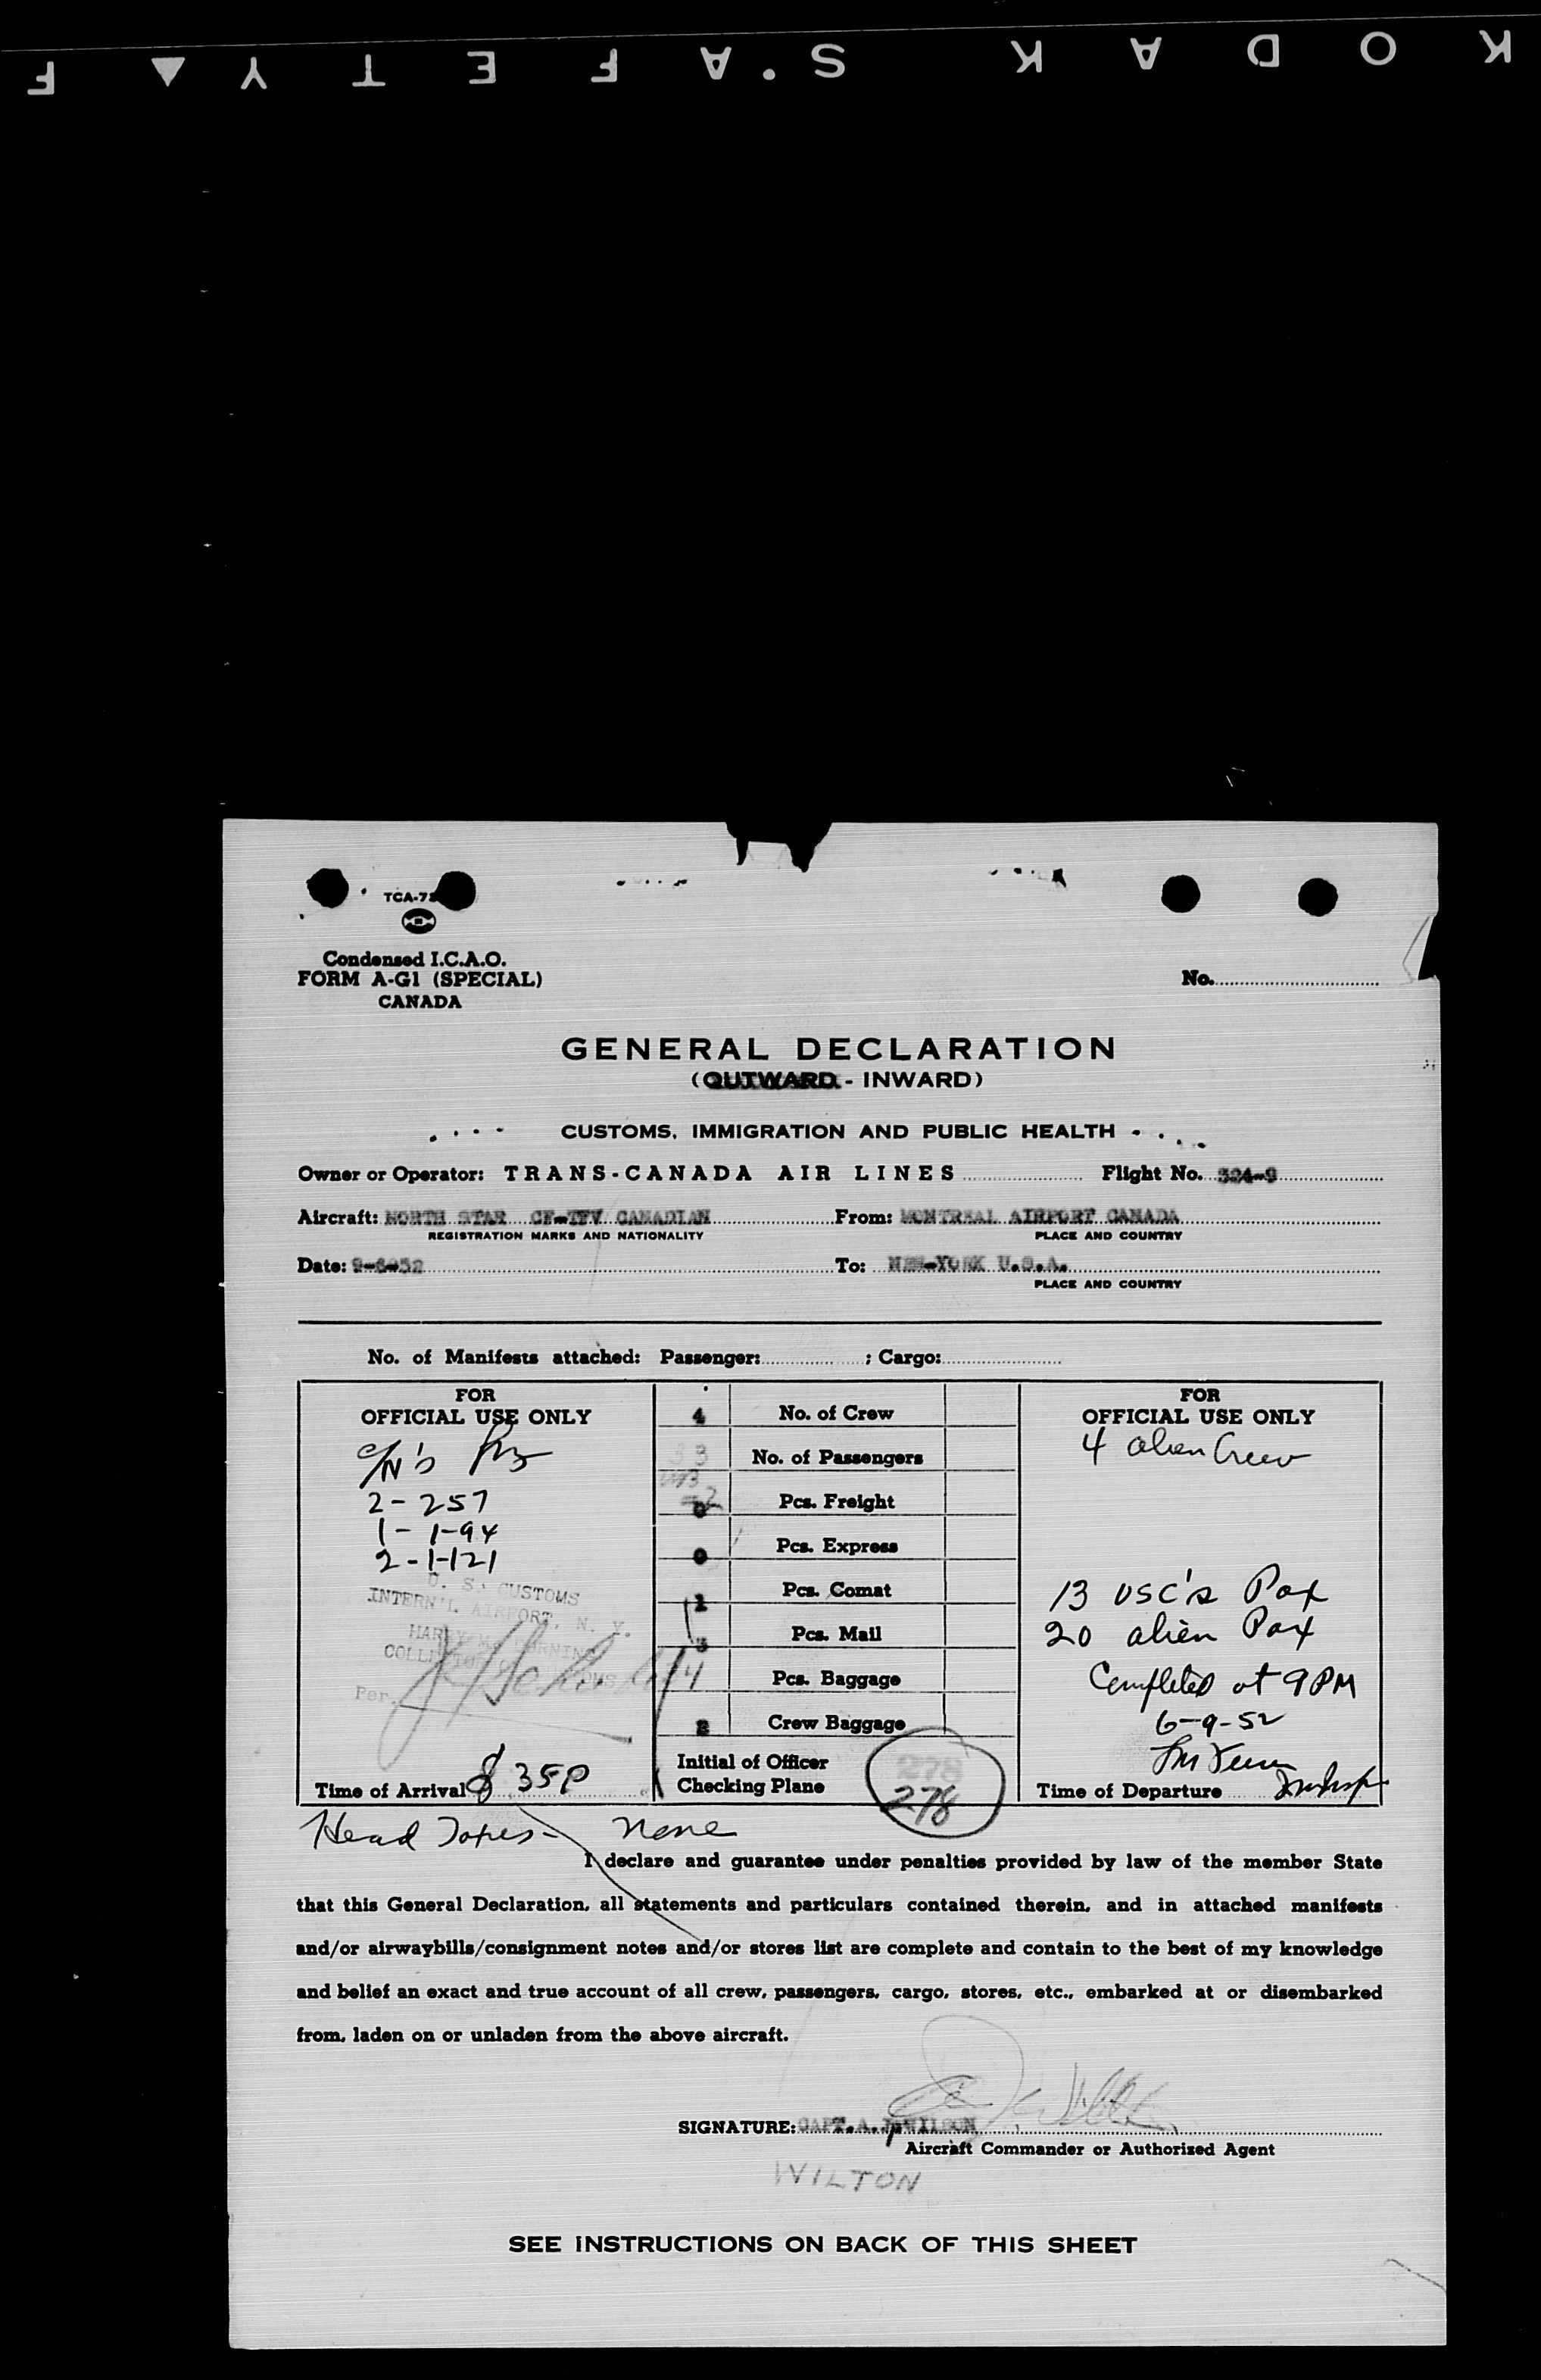 KODAK S.AFETY F
TCA-7
Condensed I.C.A.O.
FORM A-G1 (SPECIAL)
CANADA
No.
GENERAL DECLARATION
(OUTWARD - INWARD)
CUSTOMS, IMMIGRATION AND PUBLIC HEALTH
Owner or Operator: TRANS-CANADA AIR LINES Flight No. 324-9
Aircraft: NORTH STAR CF-TFV CANADIAN From: MONTREAL AIRPORT CANADA
REGISTRATION MARKS AND NATIONALITY PLACE AND COUNTRY
Date: 9-6-52 To: NEW-YORK U.S.A.
PLACE AND COUNTRY
No. of Manifests attached: Passenger: ; Cargo:
FOR
OFFICIAL USE ONLY
C/N's
2-257
1-1-94
2-1-121
U. S. CUSTOMS
INTERN'L AIRPORT, N. Y.
HARRY M. DURNING
COLLECTOR OF CUSTOMS
Per.
Time of Arrival 8 35P
4 No. of Crew
33 No. of Passengers
0 Pcs. Freight
0 Pcs. Express
1 Pcs. Comat
3 Pcs. Mail
Pcs. Baggage
Crew Baggage
Initial of Officer
Checking Plane
278
278
FOR
OFFICIAL USE ONLY
4 alien Crew
13 USC's Pax
20 alien Pax
Completed at 9 PM
6-9-52
Time of Departure
Head Taxes - None
I declare and guarantee under penalties provided by law of the member State
that this General Declaration, all statements and particulars contained therein, and in attached manifests
and/or airwaybills/consignment notes and/or stores list are complete and contain to the best of my knowledge
and belief an exact and true account of all crew, passengers, cargo, stores, etc., embarked at or disembarked
from, laden on or unladen from the above aircraft.
SIGNATURE: CAPT. A. J. WILSON
Aircraft Commander or Authorized Agent
WILTON
SEE INSTRUCTIONS ON BACK OF THIS SHEET